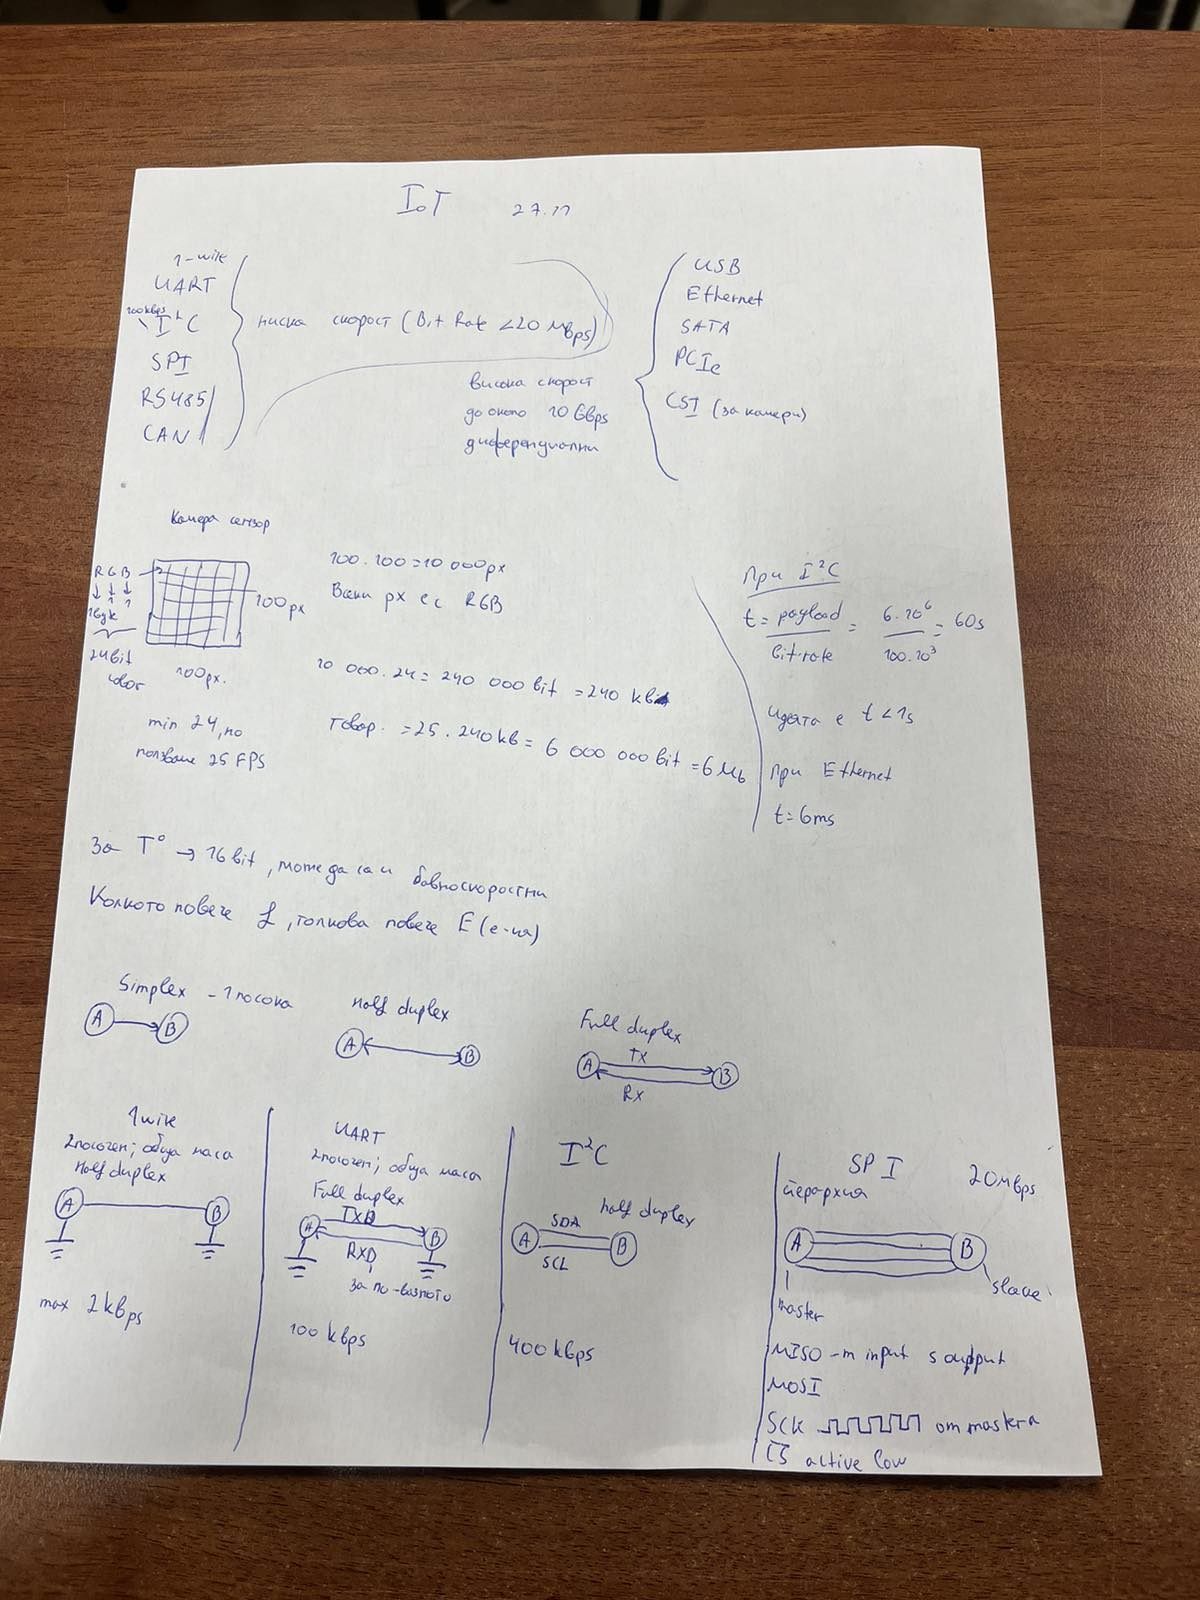 IoT 27.11
1-wire
UART
100kbps
I²C
SPI
RS485
CAN
ниска скорост (Bit Rate <20 Mbps)
висока скорост
до около 10 Gbps
диференциални
USB
Ethernet
SATA
PCIe
CSI (за камери)
Камера сензор
RGB
24bit
100px
100px.
min 24, но
ползваме 25 FPS
100.100=10 000px
Всеки px е с RGB
10 000.24= 240 000 bit = 240 kbit
товар. = 25. 240kb = 6 000 000 bit = 6Mb
При I²C
t = payload / bit-rate = 6.10⁶ / 100.10³ = 60s
идеята е t<1s
При Ethernet
t=6ms
За T° → 16 bit, може да са и бавноскоростни
Колкото повече f, толкова повече E (е-ия)
Simplex - 1 посока
A B
Half duplex
A B
Full duplex
A Tx B
Rx
1wire
2посочен; обща маса
Half duplex
A B
max 2 kbps
UART
2посочен; обща маса
Full duplex
TXD
A B
RXD
100 kbps
I²C
half duplex
SDA
A B
SCL
400kbps
SPI 20Mbps
йерархия
A B
master
slave
MISO - m input s output
MOSI
SCK от mastera
CS active low